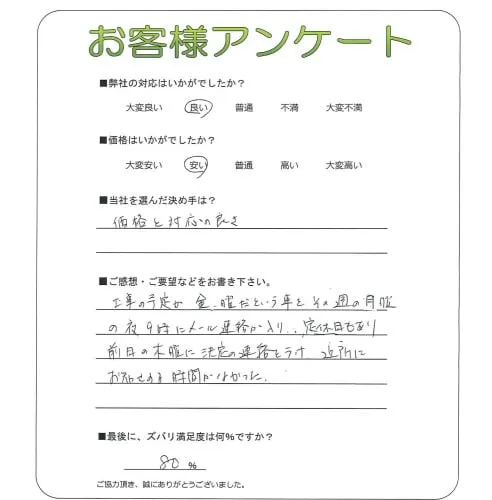 お客様アンケート
■弊社の対応はいかがでしたか？
大変良い 良い 普通 不満 大変不満
■価格はいかがでしたか？
大変安い 安い 普通 高い 大変高い
■当社を選んだ決め手は？
価格と対応の良さ
■ご感想・ご要望などをお書き下さい。
工事の予定が金曜だという事をその週の月曜
の夜9時にメール連絡が入り、定休日もあり
前日の木曜に決定の連絡をうけ 近所に
お知らせする時間がなかった。
■最後に、ズバリ満足度は何%ですか？
80 %
ご協力頂き、誠にありがとうございました。